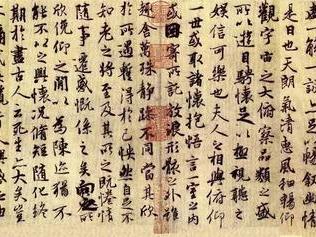 盛一觴一詠亦足以暢敘幽情
是日也天朗氣清惠風和暢仰
觀宇宙之大俯察品類之盛
所以遊目騁懷足以極視聽之
娛信可樂也夫人之相與俯仰
一世或取諸懷抱悟言一室之內
或因寄所託放浪形骸之外雖
趣舍萬殊靜躁不同當其欣
於所遇蹔得於己怏然自足不
知老之將至及其所之既惓情
隨事遷感慨係之矣向之所
欣俛仰之閒以為陳迹猶不
能不以之興懷況脩短隨化終
期於盡古人云死生亦大矣豈